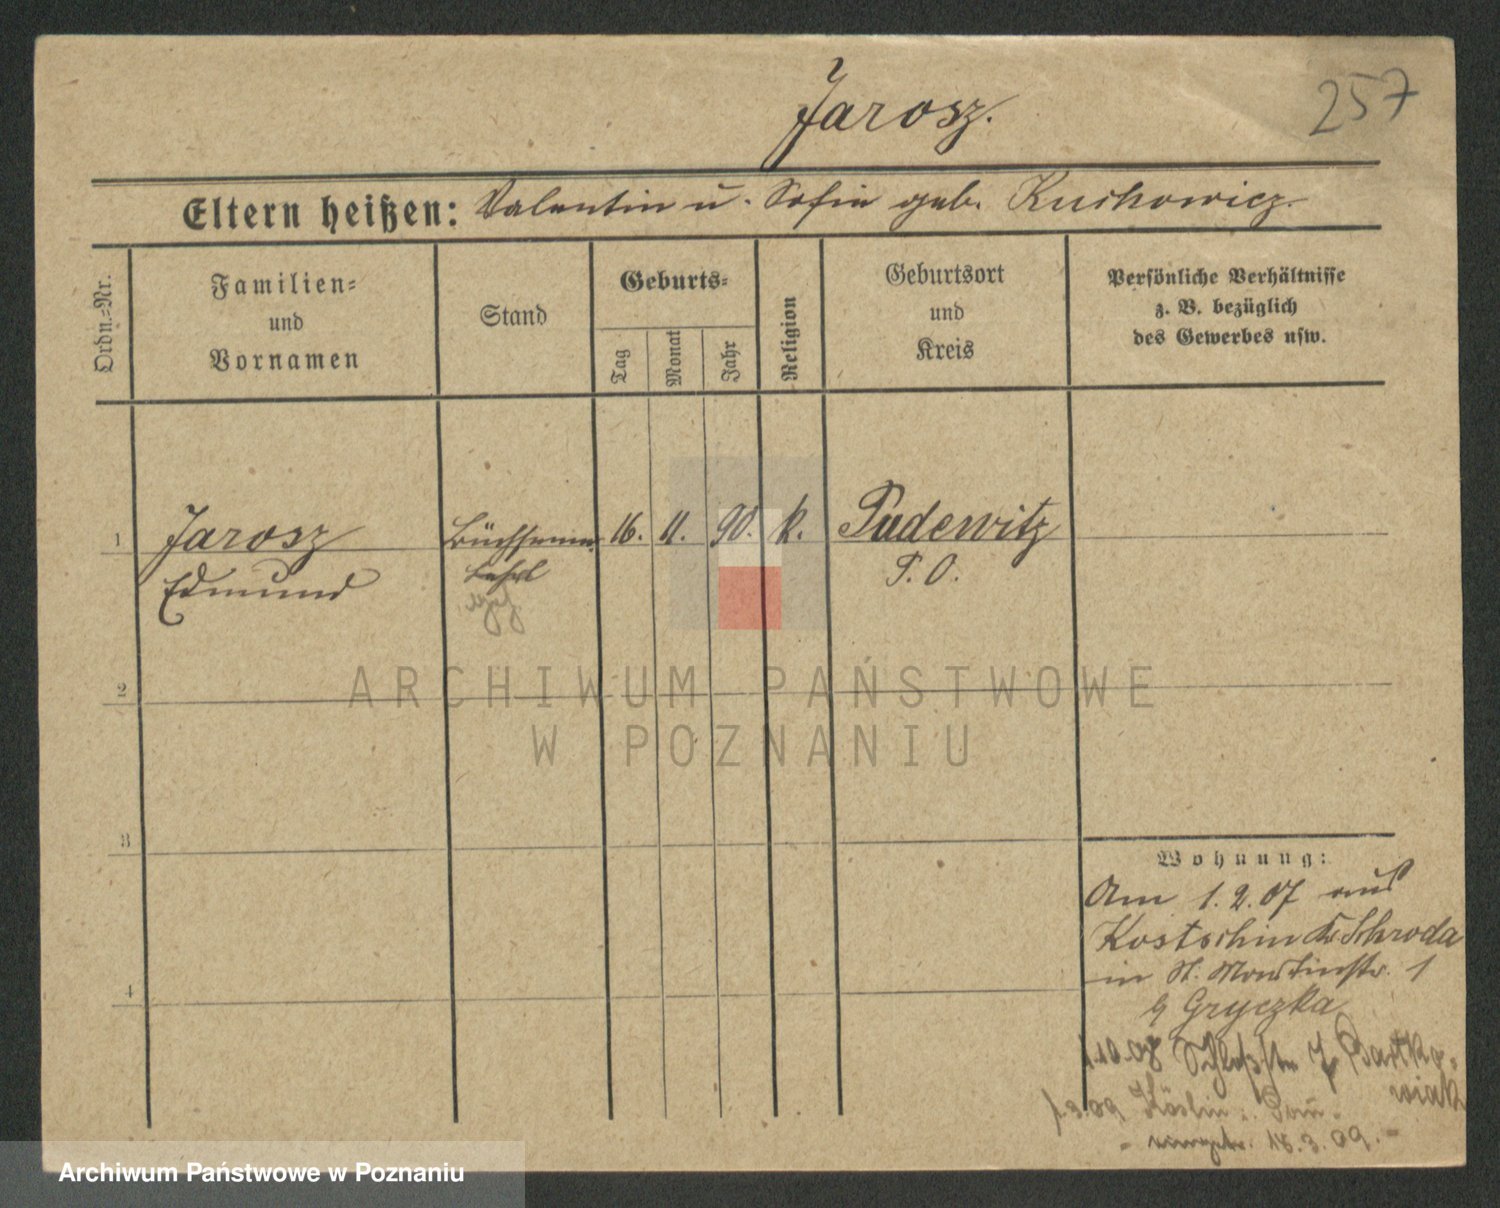 Jarosz.
257
Eltern heißen: Valentin u. Sofie geb. Kuchowicz.
Ordn.=Nr.
Familien=
und
Vornamen
Stand
Geburts=
Tag
Monat
Jahr
Religion
Geburtsort
und
Kreis
Persönliche Verhältnisse
z. B. bezüglich
des Gewerbes usw.
1 Jarosz 16. 11. 90. k. Pudewitz
Edmund P. O.
2
3
4
Wohnung:
Am 1.2.07 aus
Kostschin Kr Schroda
in St. Martinstr. 1
Gryczka
1.10.08 Schloßstr 7 Bartko=
wiak
1.3.09 Köslin
15.3.09.
ARCHIWUM PAŃSTWOWE
W POZNANIU
Archiwum Państwowe w Poznaniu